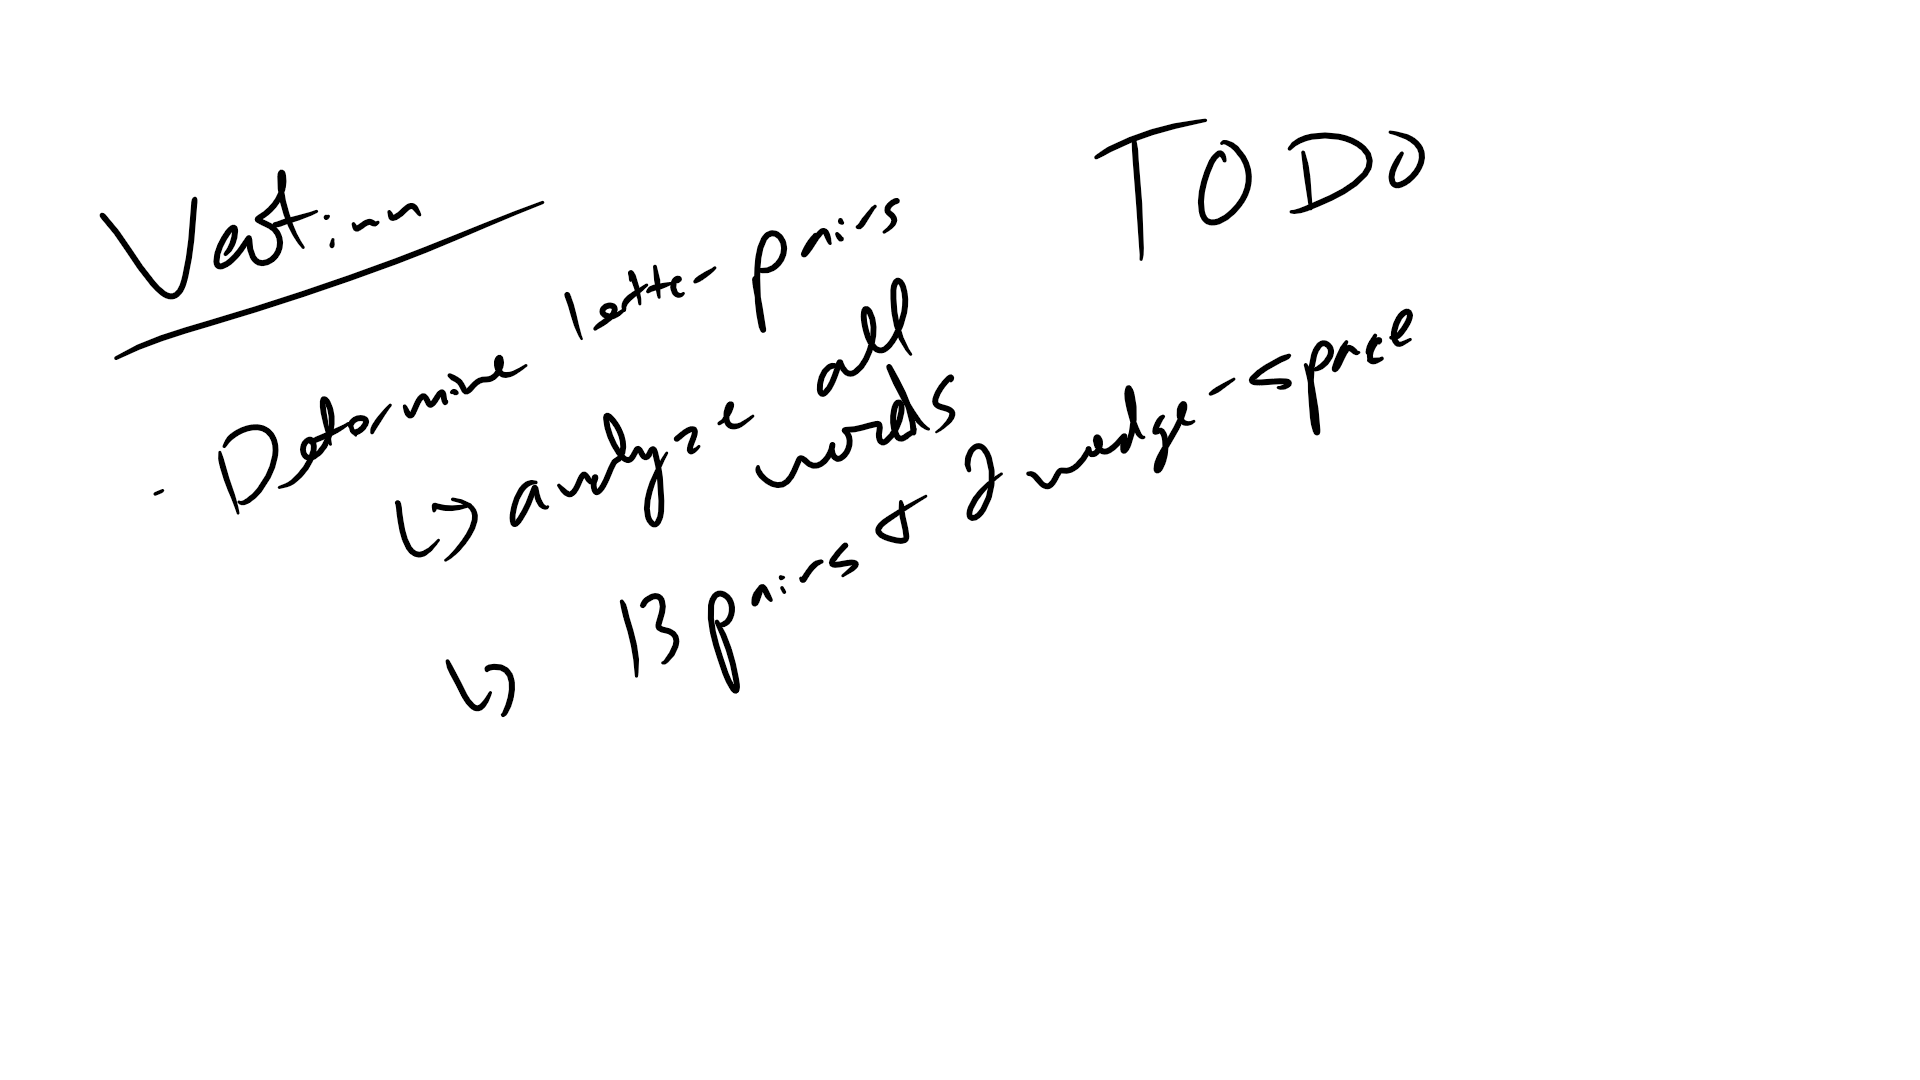 TODO
Determine letter-pairs
↳ analyze all
words
↳ 13 pairs & 2 wedge-space